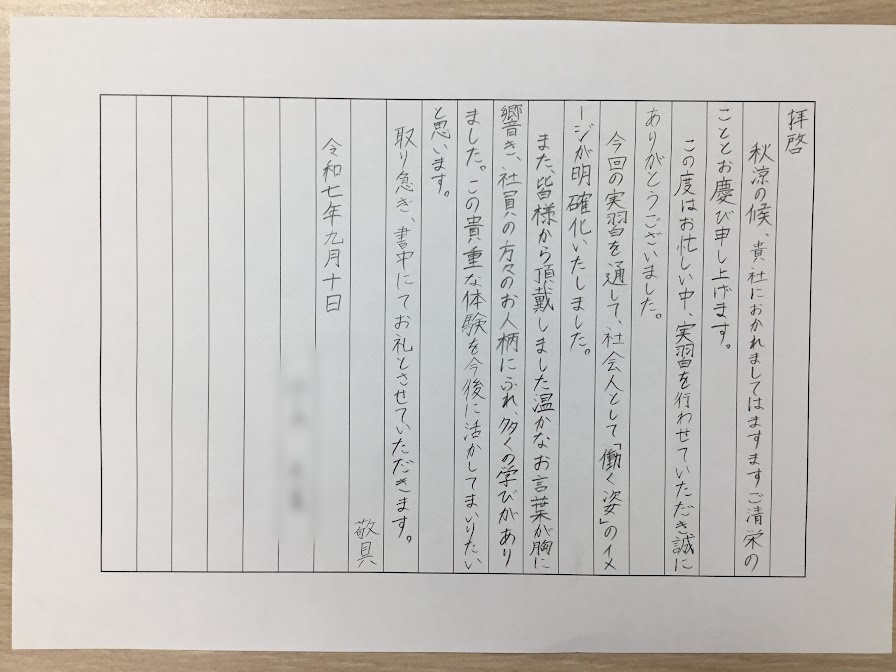 拝啓
秋涼の候、貴社におかれましてはますますご清栄の
こととお慶び申し上げます。
この度はお忙しい中、実習を行わせていただき誠に
ありがとうございました。
今回の実習を通して、社会人として「働く姿」のイメ
ージが明確化いたしました。
また、皆様から頂戴しました温かなお言葉が胸に
響き、社員の方々のお人柄にふれ、多くの学びがあり
ました。この貴重な体験を今後に活かしてまいりたい
と思います。
取り急ぎ、書中にてお礼とさせていただきます。
敬具
令和七年九月十日